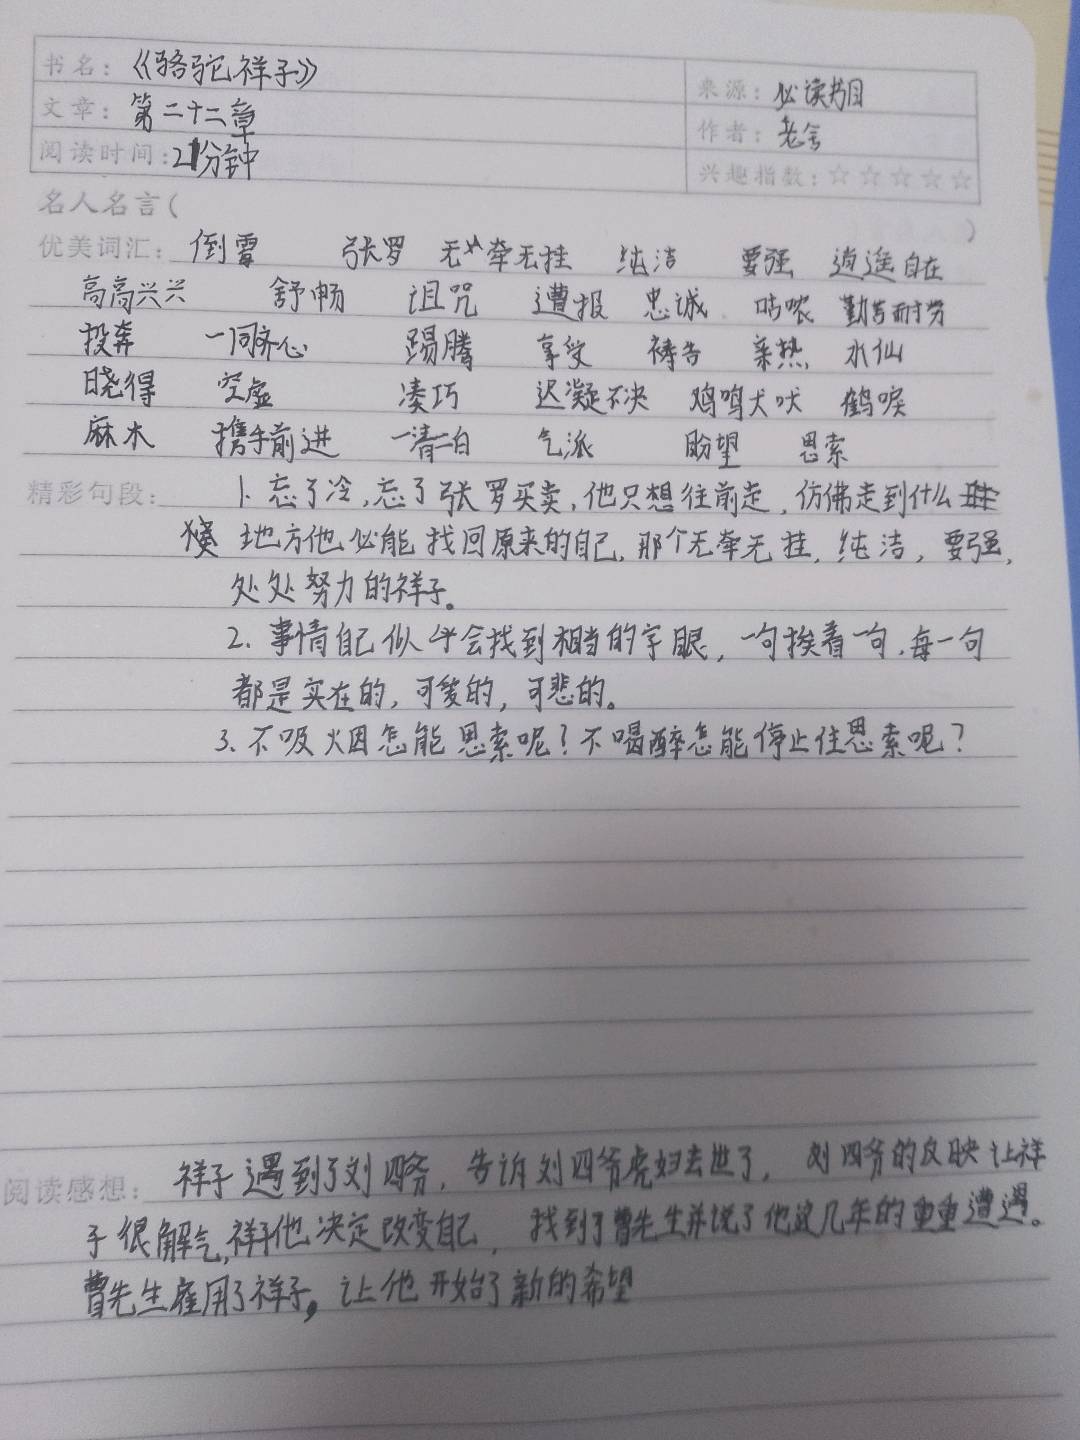 书名：《骆驼祥子》 来源：必读书目
文章：第二十二章 作者：老舍
阅读时间：21分钟 兴趣指数：☆☆☆☆☆
名人名言（ ）
优美词汇： 倒霉 张罗 无牵无挂 纯洁 要强 逍遥自在
高高兴兴 舒畅 诅咒 遭报 忠诚 咕哝 勤苦耐劳
投奔 一同齐心 踢腾 享受 祷告 亲热 水仙
晓得 空虚 凑巧 迟凝不决 鸡鸣犬吠 鹤唳
麻木 携手前进 一清二白 气派 盼望 思索
精彩句段： 1. 忘了冷，忘了张罗买卖，他只想往前走，仿佛走到什么
地方他必能找回原来的自己，那个无牵无挂，纯洁，要强，
处处努力的祥子。
2. 事情自己似乎会找到相当的字眼，一句挨着一句，每一句
都是实在的，可爱的，可悲的。
3. 不吸烟怎能思索呢？不喝醉怎能停止住思索呢？
阅读感想： 祥子遇到了刘四爷，告诉刘四爷虎妞去世了，刘四爷的反映让祥
子很解气，祥子他决定改变自己，找到了曹先生并说了他这几年的重重遭遇。
曹先生雇用了祥子，让他开始了新的希望